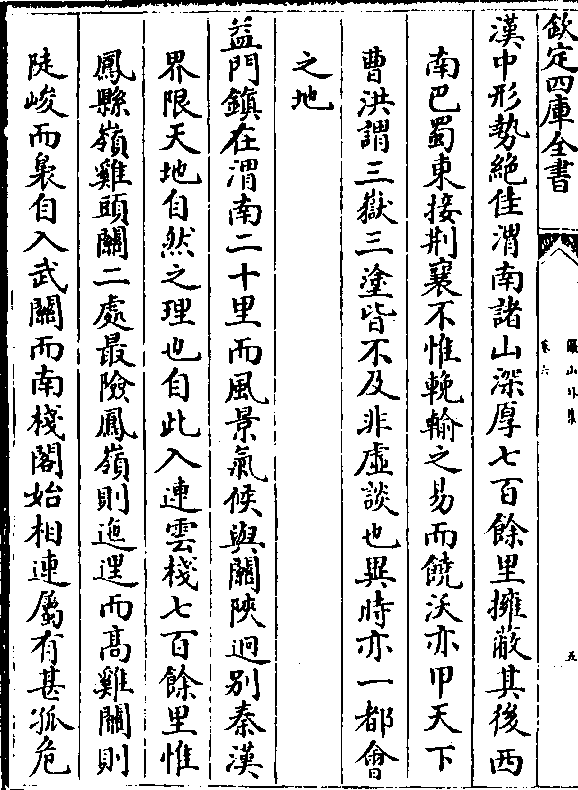 欽定四庫全書
卷六
五
漢中形勢絶佳渭南諸山深厚七百餘里擁蔽其後西
南巴蜀東接荆襄不惟輓輸之易而饒沃亦甲天下
曹洪謂三嶽三塗皆不及非虛談也異時亦一都會
之地
益門鎮在渭南二十里而風景氣候與關陜迥别秦漢
界限天地自然之理也自此入連雲棧七百餘里惟
鳳縣嶺雞頭關二處最險鳳嶺則迤邐而髙雞關則
陡峻而裊自入武關而南棧閣始相連屬有甚孤危